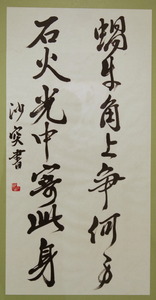 蝸牛角上争何事
石火光中寄此身
沙奕書